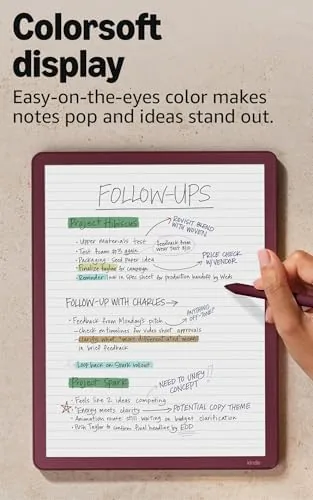 Colorsoft
display
Easy-on-the-eyes color makes
notes pop and ideas stand out.
FOLLOW-UPS
Project Hibiscus
REVISIT BLEND
WITH WOVEN
- Upper Materials test
- Test foam #3 again
Feedback from
wear test 8/10
- Packaging: Seed paper idea
PRICE CHECK
W/VENDOR
- Finalize tagline for campaign
- Reminder: link in spec sheet for production handoff by Weds
FOLLOW-UP WITH CHARLES →
- Feedback from Monday's pitch
- Check on timelines for video shoot approvals
- Clarify what "more differentiated" means
in brief feedback
- Loop back on Shark rollout
NEED TO UNIFY
CONCEPT!
Project Spark
- Feels like 2 ideas competing
- "Energy meets clarity" → POTENTIAL COPY THEME
- Animation route still waiting on budget clarification
- Push Taylor to confirm final headline by EOD
kindle